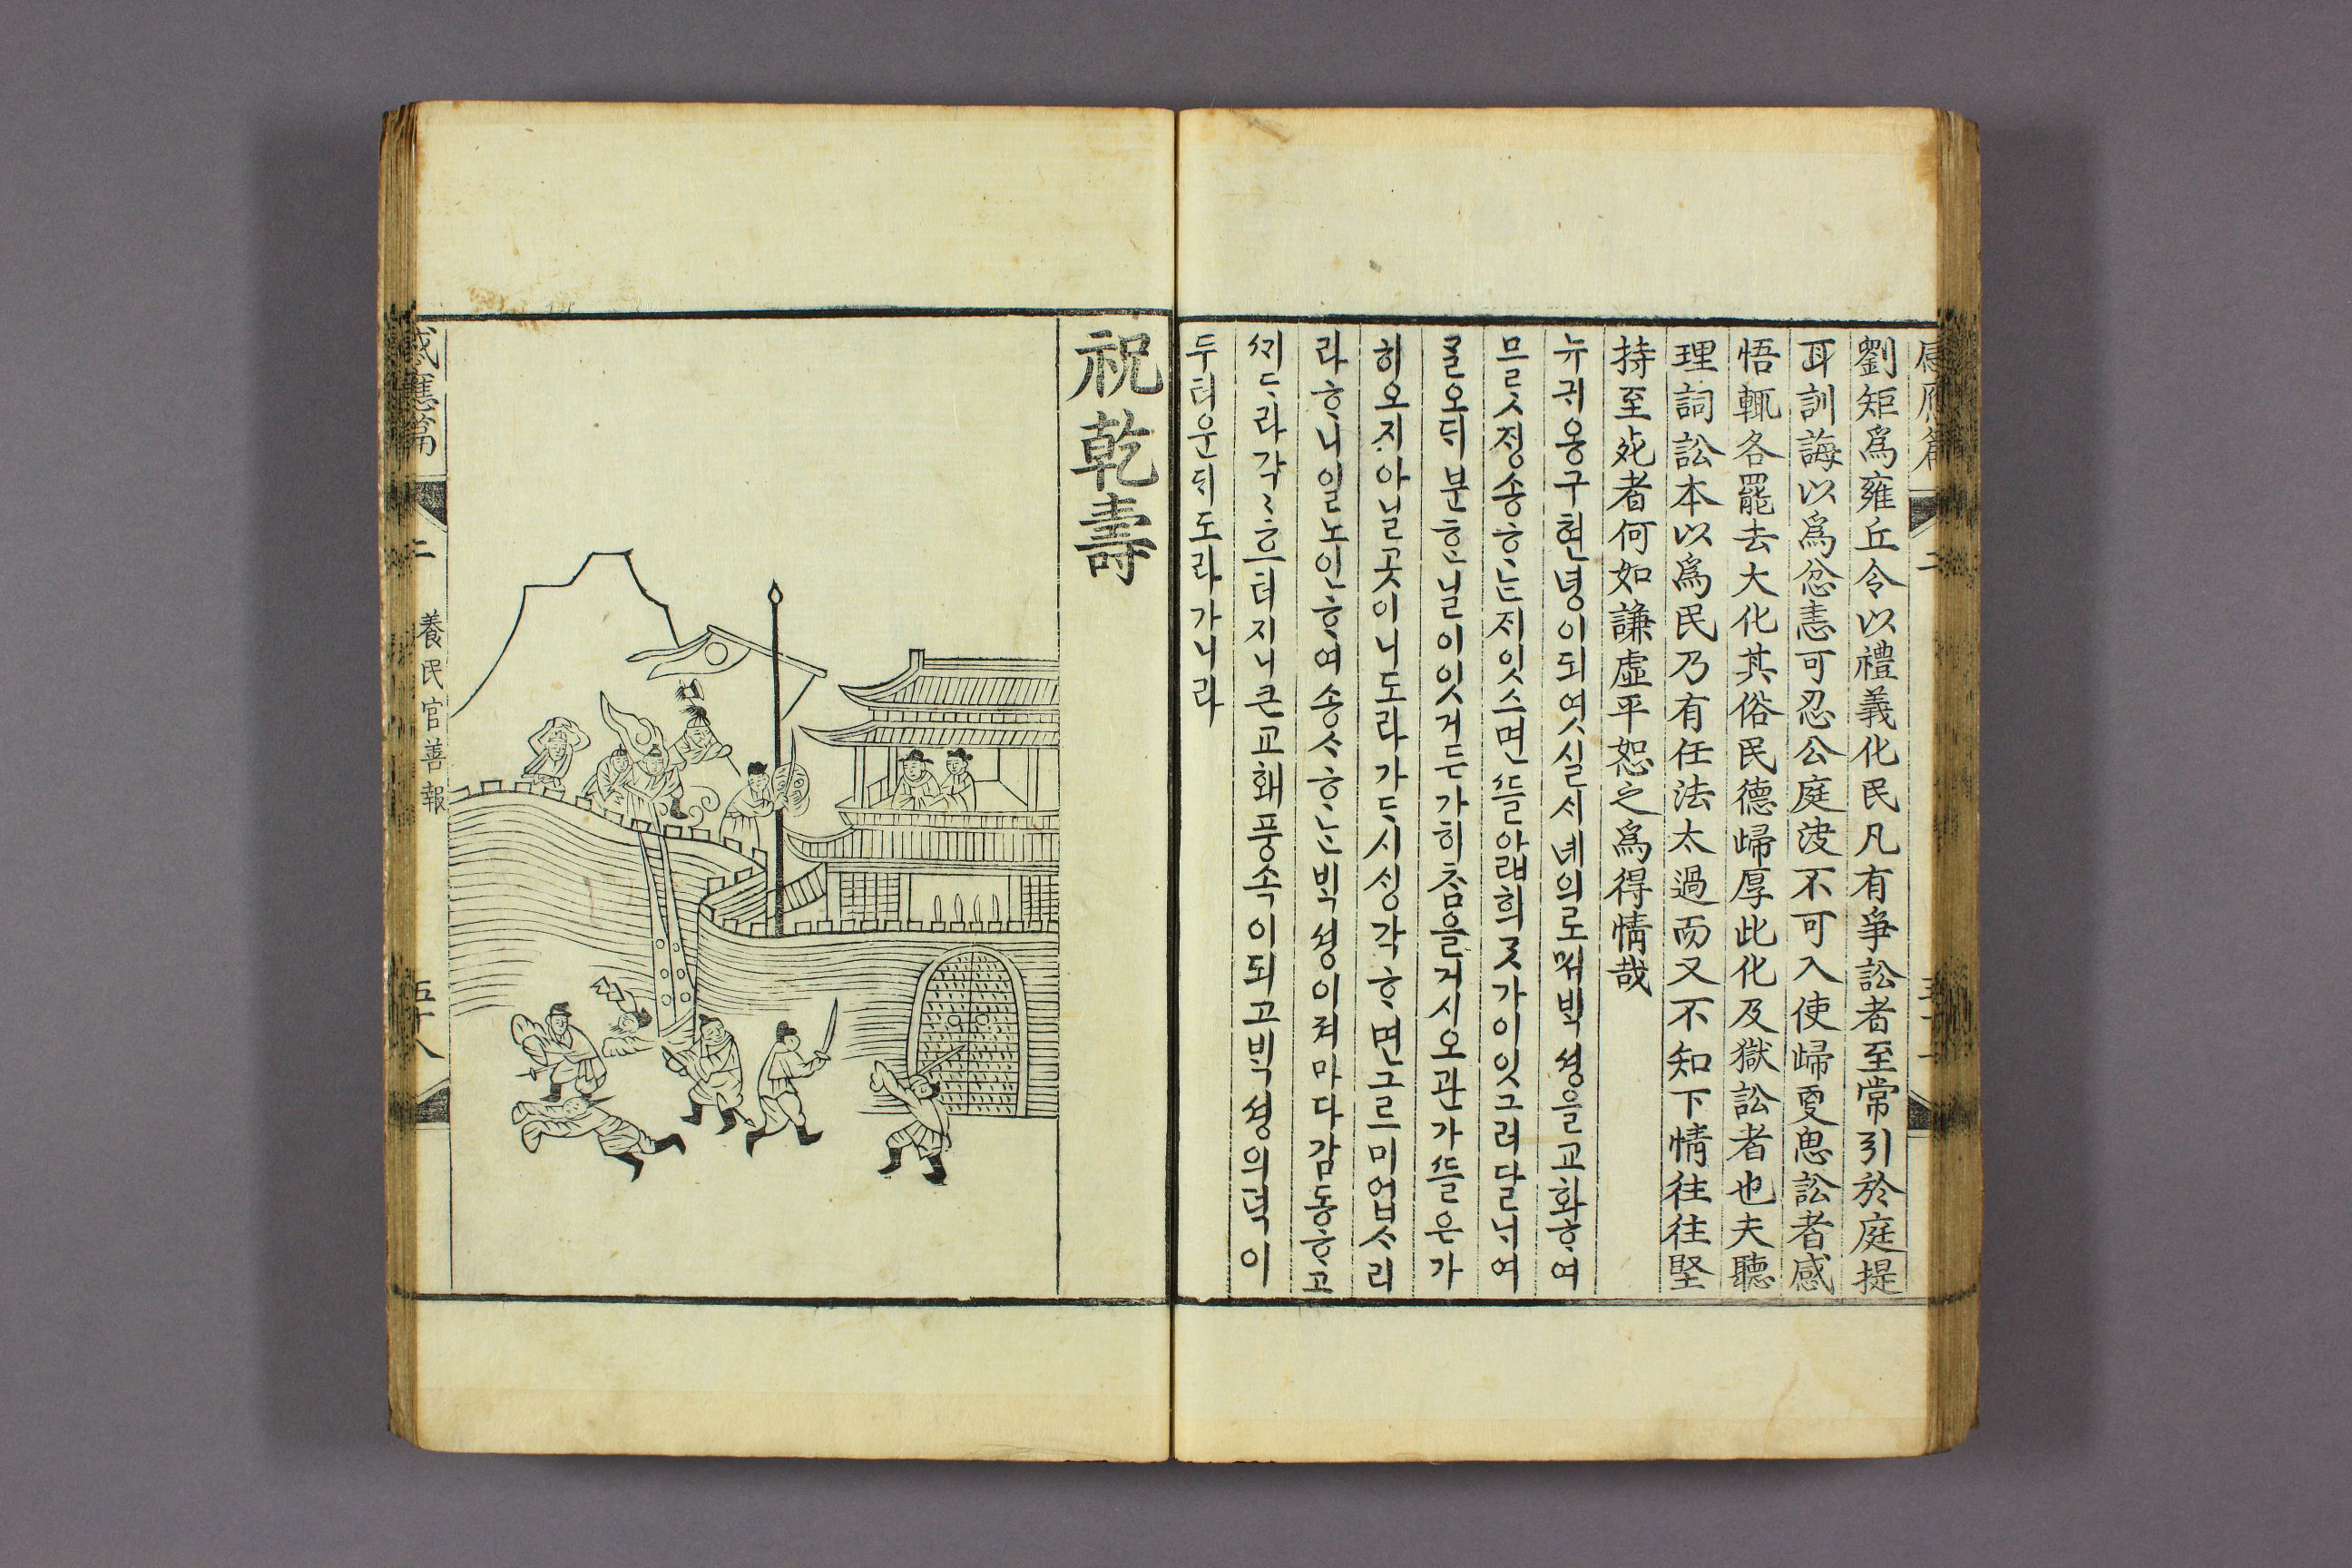 劉矩爲雍丘令以禮義化民凡有爭訟者至常引於庭提
耳訓誨以爲忿恚可忍公庭決不可入使歸更思訟者感
悟輒各罷去大化其俗民德歸厚此化及獄訟者也夫聽
理詞訟本以爲民乃有任法太過而又不知下情往往堅
持至死者何如謙虛平恕之爲得情哉
뉴귀옹구현녕이되엿실시녜의로쎠ᄇᆡᆨ셩을교화ᄒᆞ여
므릇졍송ᄒᆞᄂᆞᆫᄌᆡ잇스면ᄯᅳᆯ압희ᄀᆞᆺ가이잇그러달ᄂᆡ여
ᄀᆞᆯ오ᄃᆡ분ᄒᆞᆫ닐이잇거든가히ᄎᆞᆷ을거시오관가ᄯᅳᆯ은가
히오지아닐곳이니도라가ᄃᆞ시ᄉᆡᆼ각ᄒᆞ면그르미업ᄉᆞ리
라ᄒᆞ니일노인ᄒᆞ여송ᄉᆞᄒᆞᄂᆞᆫᄇᆡᆨ셩이져마다감동ᄒᆞ고
ᄭᆡᄃᆞ라각각흐터지니큰교홰풍속이되고ᄇᆡᆨ셩의덕이
두터운ᄃᆡ도라가니라
祝乾壽
感應篇
二
養民官善報
五十八